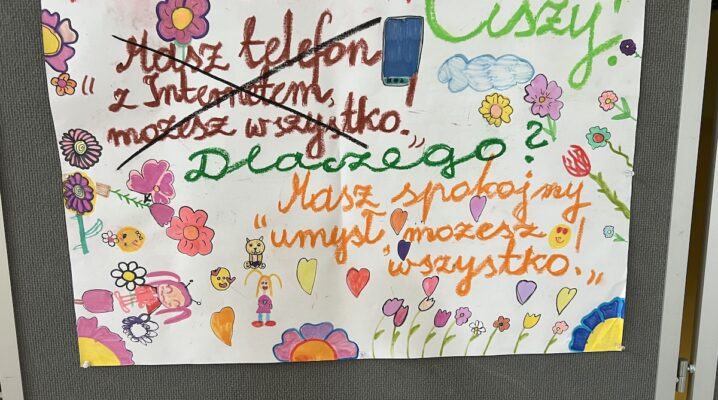 Ciszy!
„Masz telefon
z Internetem,
możesz wszystko.”
Dlaczego?
Masz spokojny
"umysł możesz
wszystko.„